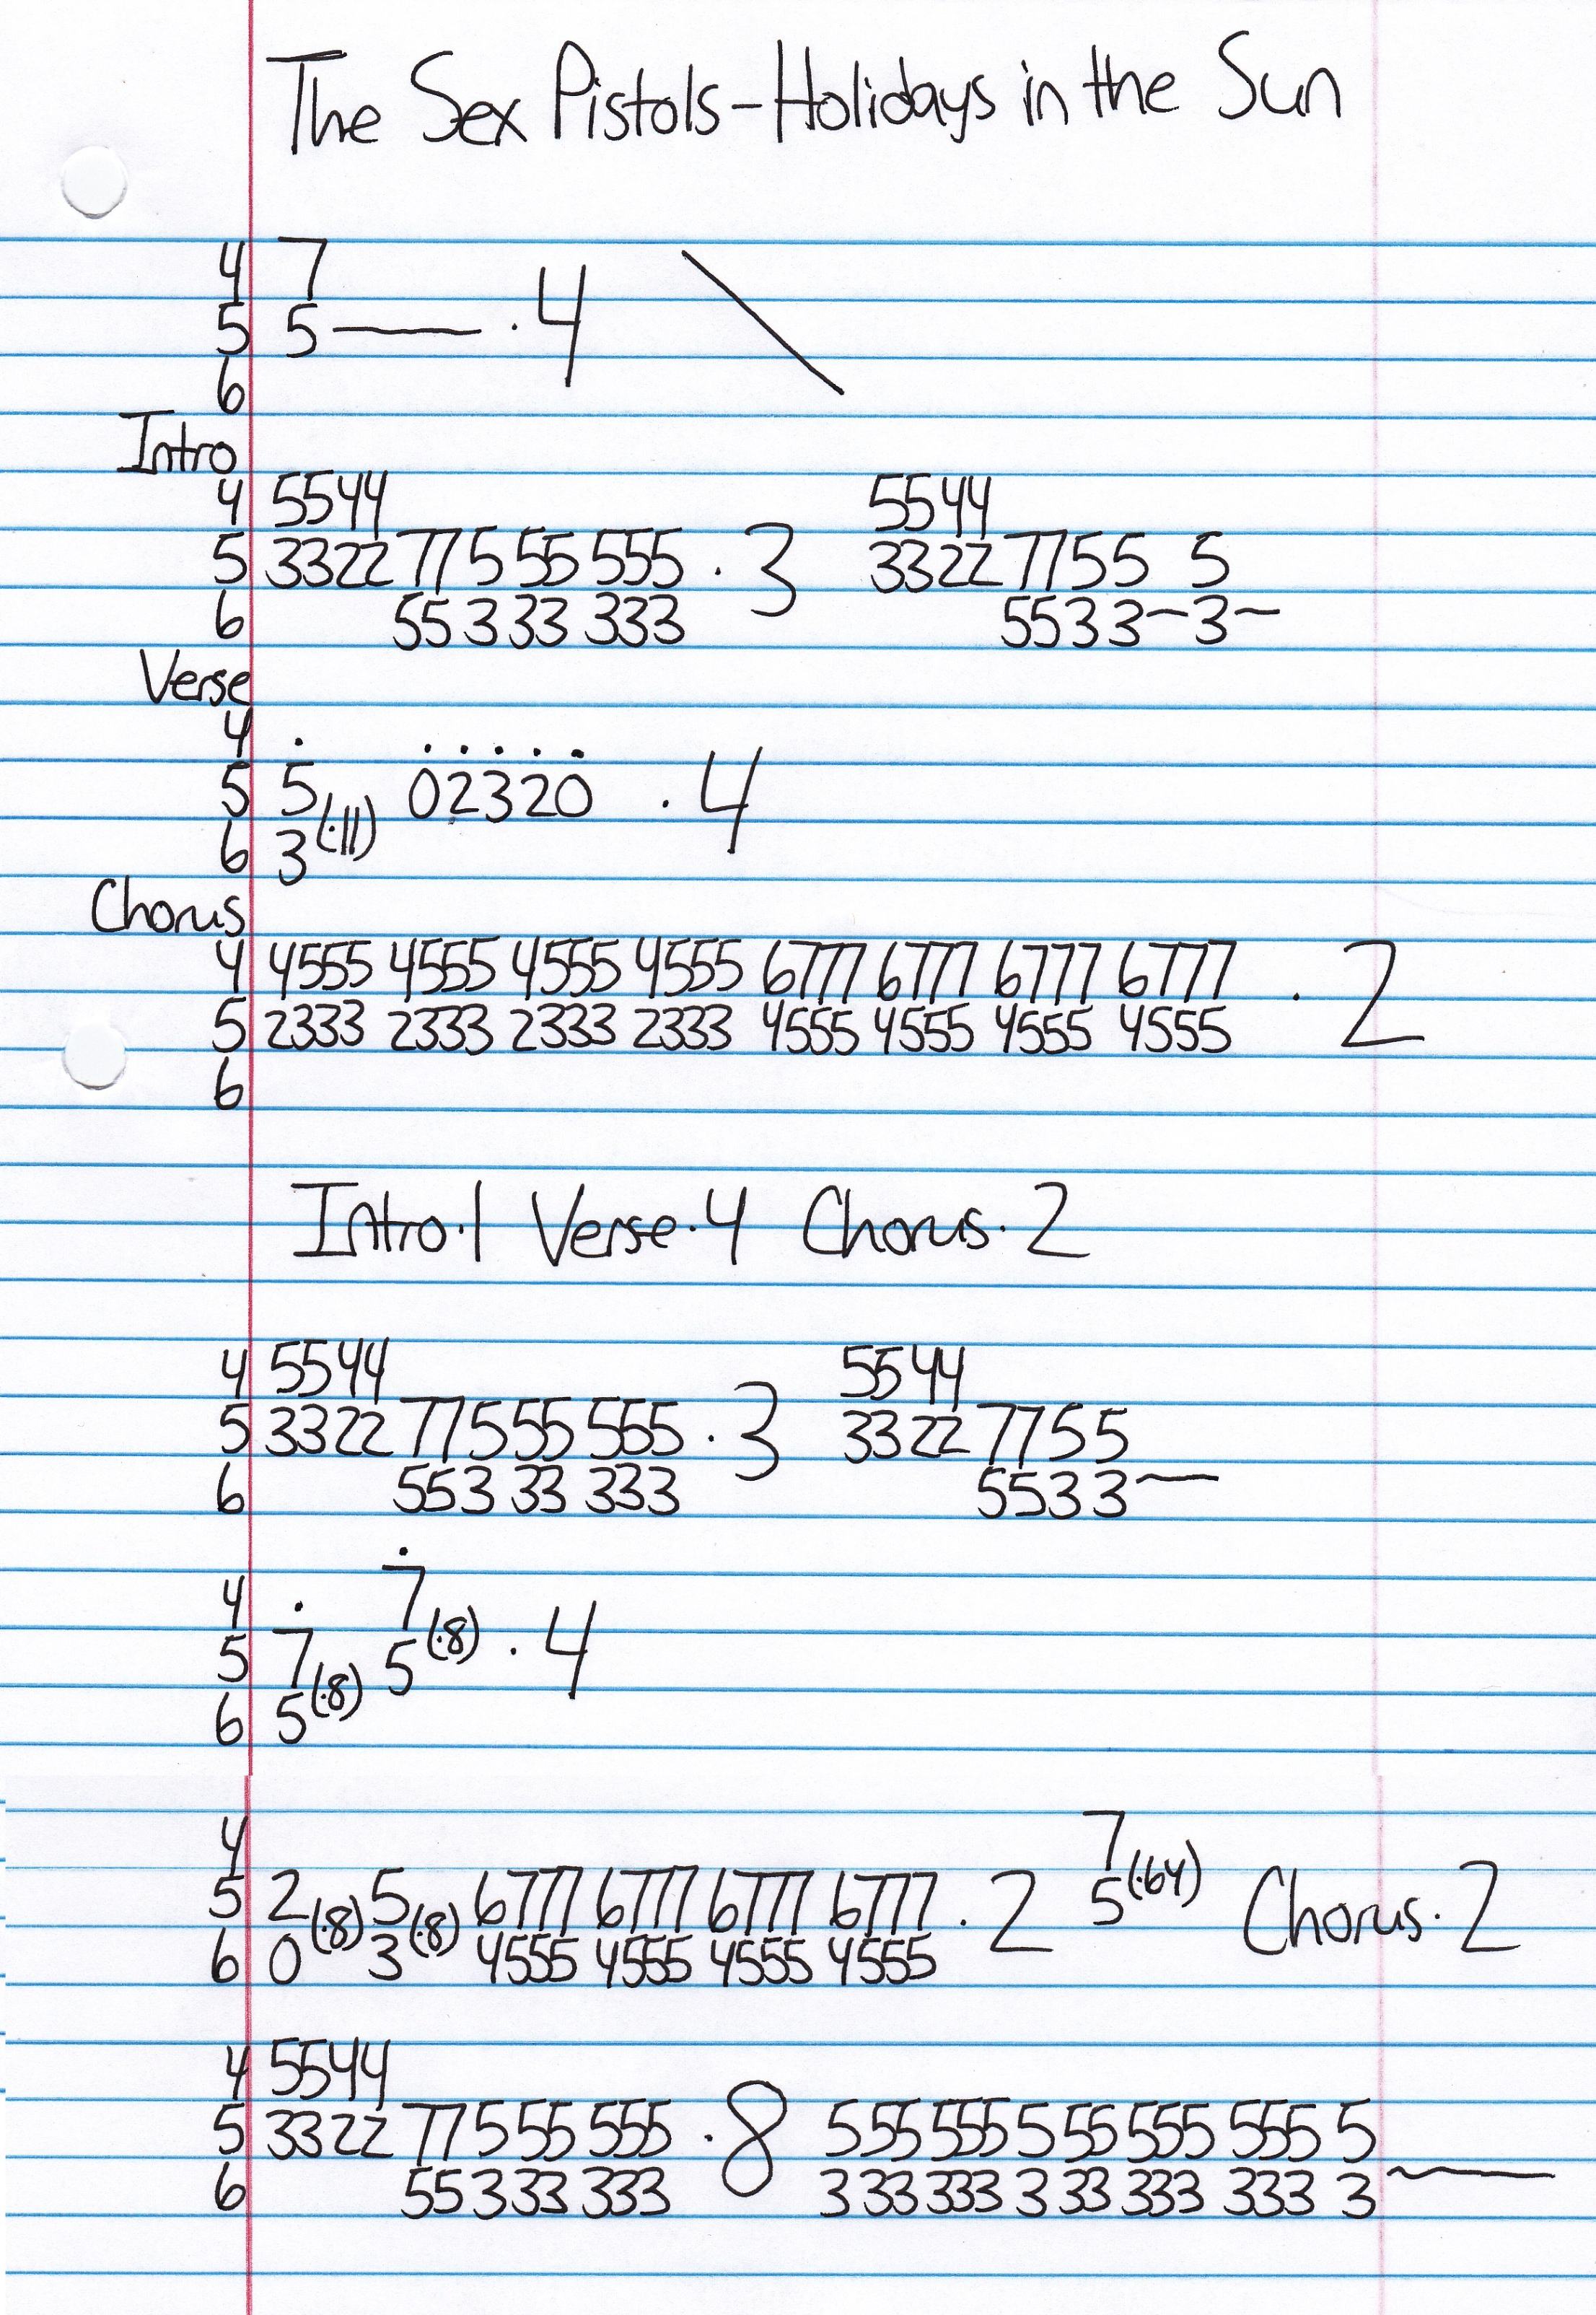 The Sex Pistols - Holidays in the Sun
4 7
5 5 —— · 4 \
6
Intro
4 5544 5544
5 3322 77 5 55 555 · 3 3322 77 55 5
6 55 3 33 333 55 3 3~3~
Verse
4 · · · · · ·
5 5 (·11) 02320 · 4
6 3
Chorus
4 4555 4555 4555 4555 6777 6777 6777 6777 · 2
5 2333 2333 2333 2333 4555 4555 4555 4555
6
Intro·1 Verse·4 Chorus·2
4 5544 5544
5 3322 77 5 55 555 · 3 3322 77 55
6 55 3 33 333 55 3 3~
4 · 7 (·8) · 4
5 7 (·8) 5
6 5
4 7 (·64)
5 2 (·8) 5 (·8) 6777 6777 6777 6777 · 2 5 Chorus·2
6 0 3 4555 4555 4555 4555
4 5544
5 3322 77 5 55 555 · 8 5 55 555 5 55 555 555 5
6 55 3 33 333 3 33 333 3 33 333 333 3~